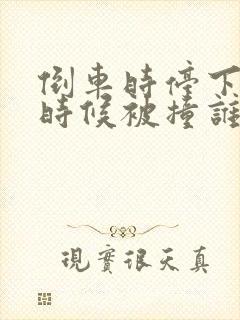 倒車時停下
時候被撞誰
現實很天真